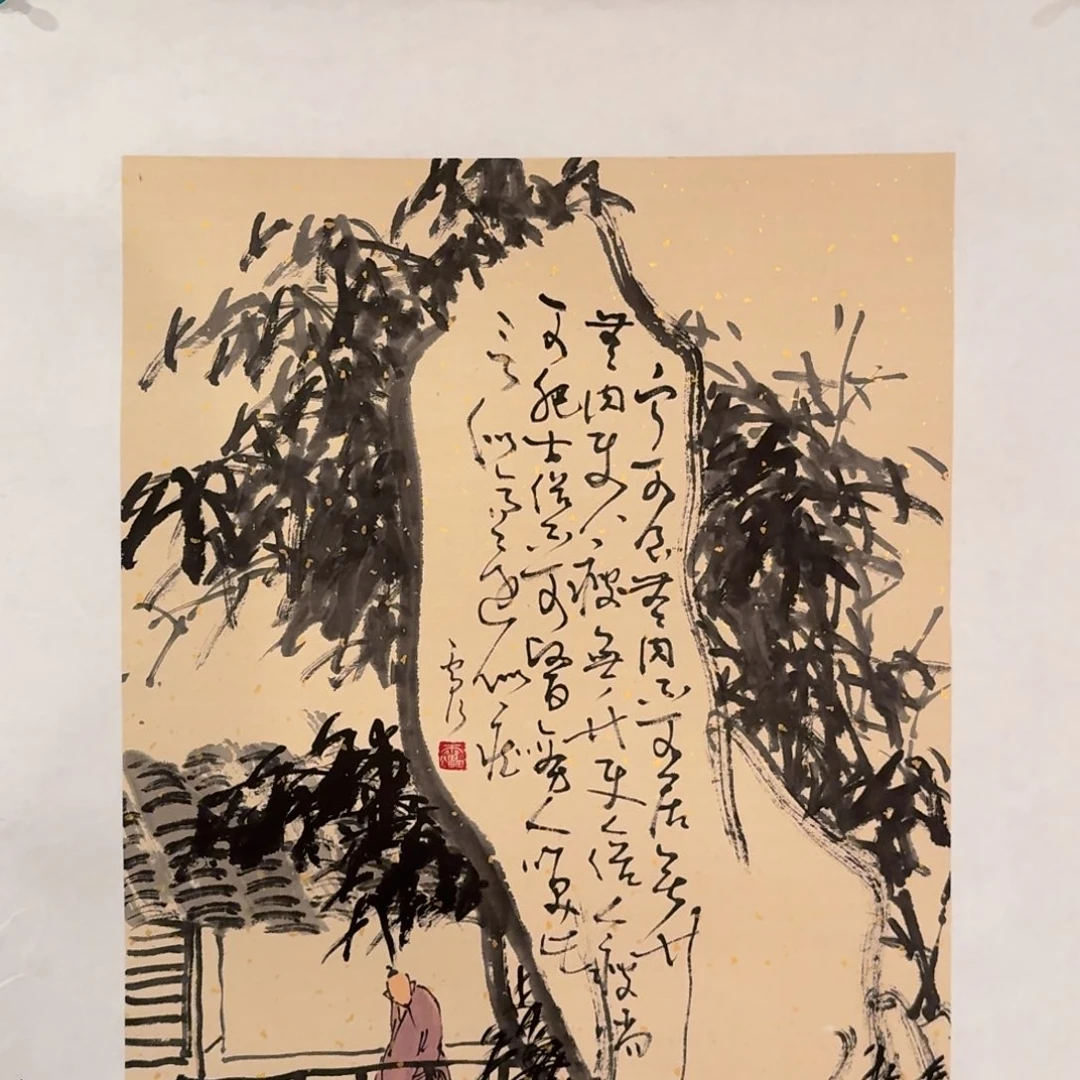 宁可食無肉不可居無竹
無肉使人瘦無竹使人俗人瘦尚
可肥士俗不可醫旁人笑此
言似高還似痴